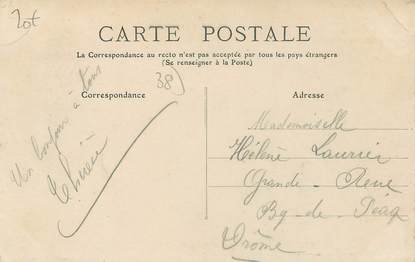 Lot
CARTE POSTALE
La Correspondance au recto n'est pas acceptée par tous les pays étrangers
(Se renseigner à la Poste)
38
Correspondance
Adresse
Un bonjour à tous
Thérèse
Mademoiselle
Hélène Laurier
Grande-Rue
Bg-de-Péag
Drôme